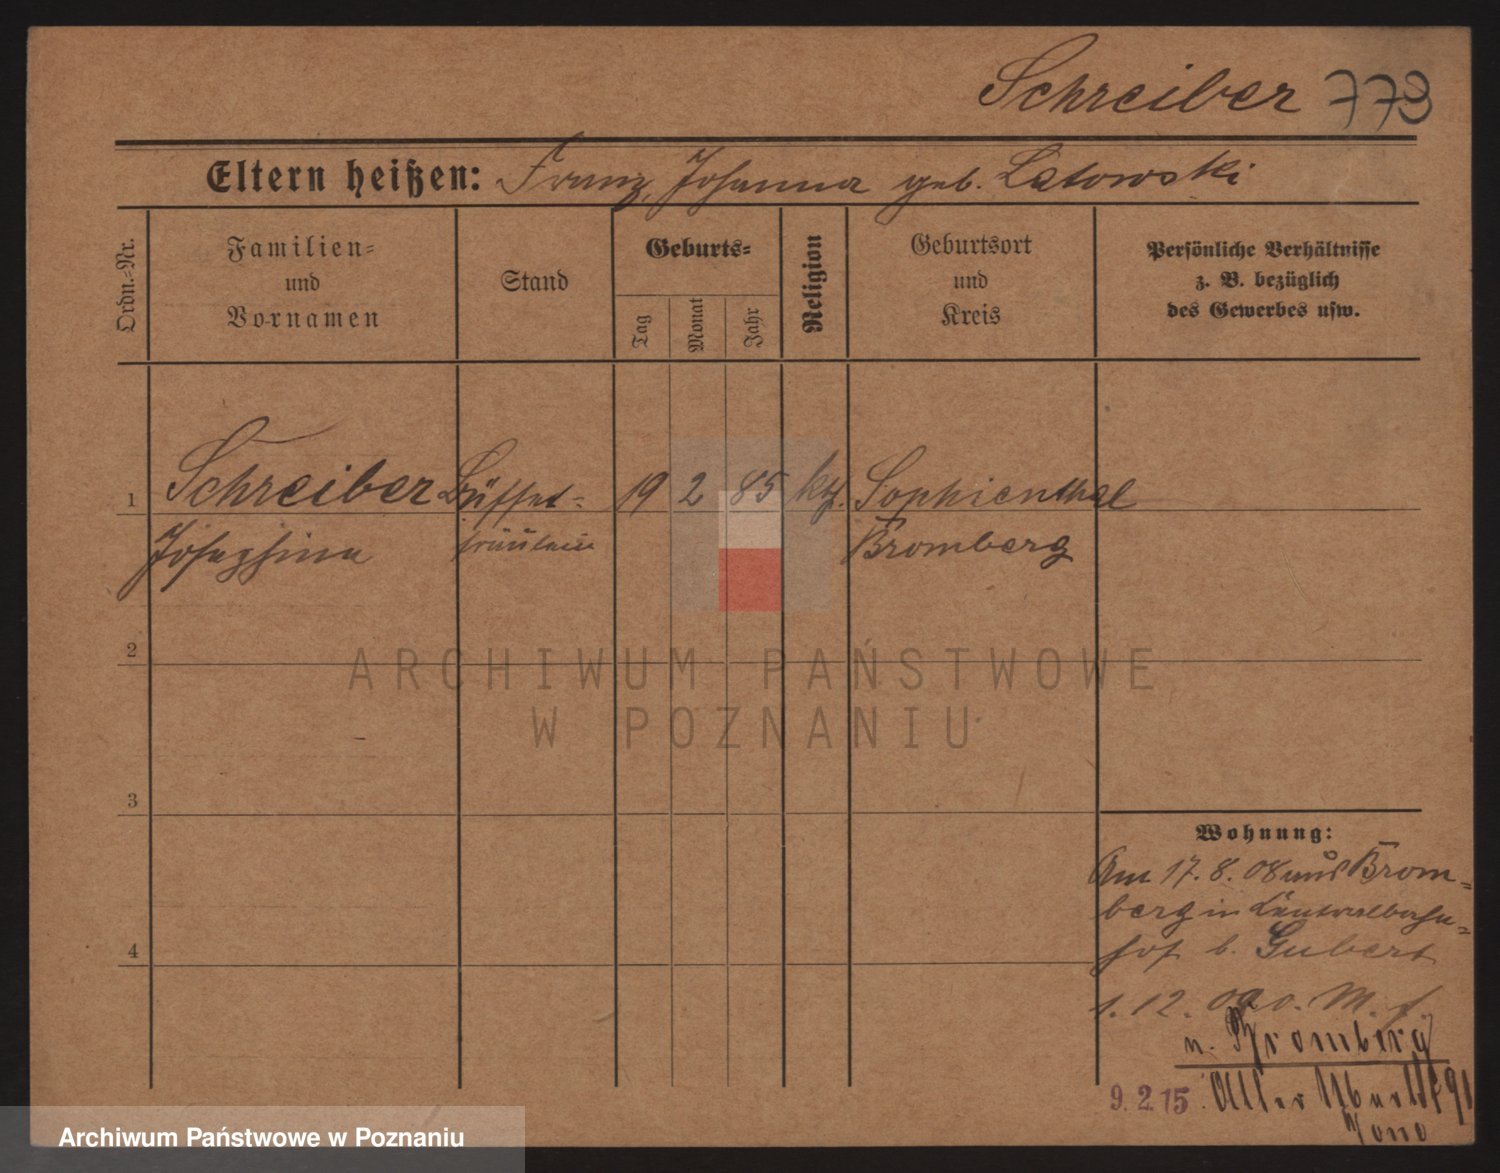 Schreiber 773
Eltern heißen: Franz, Johanna geb. Latowski
Ordn.-Nr.
Familien-
und
Vornamen
Stand
Geburts-
Tag
Monat
Jahr
Religion
Geburtsort
und
Kreis
Persönliche Verhältnisse
z. B. bezüglich
des Gewerbes usw.
1 Schreiber Büffet- 19 2 85 kth. Sophienthal
Josephine fräulein Bromberg
2
3
4
ARCHIWUM PAŃSTWOWE
W POZNANIU
Wohnung:
Am 17.8.08 aus Brom-
berg in
hof b. Gubert
1.12.
n. Bromberg
9.2.15
Archiwum Państwowe w Poznaniu